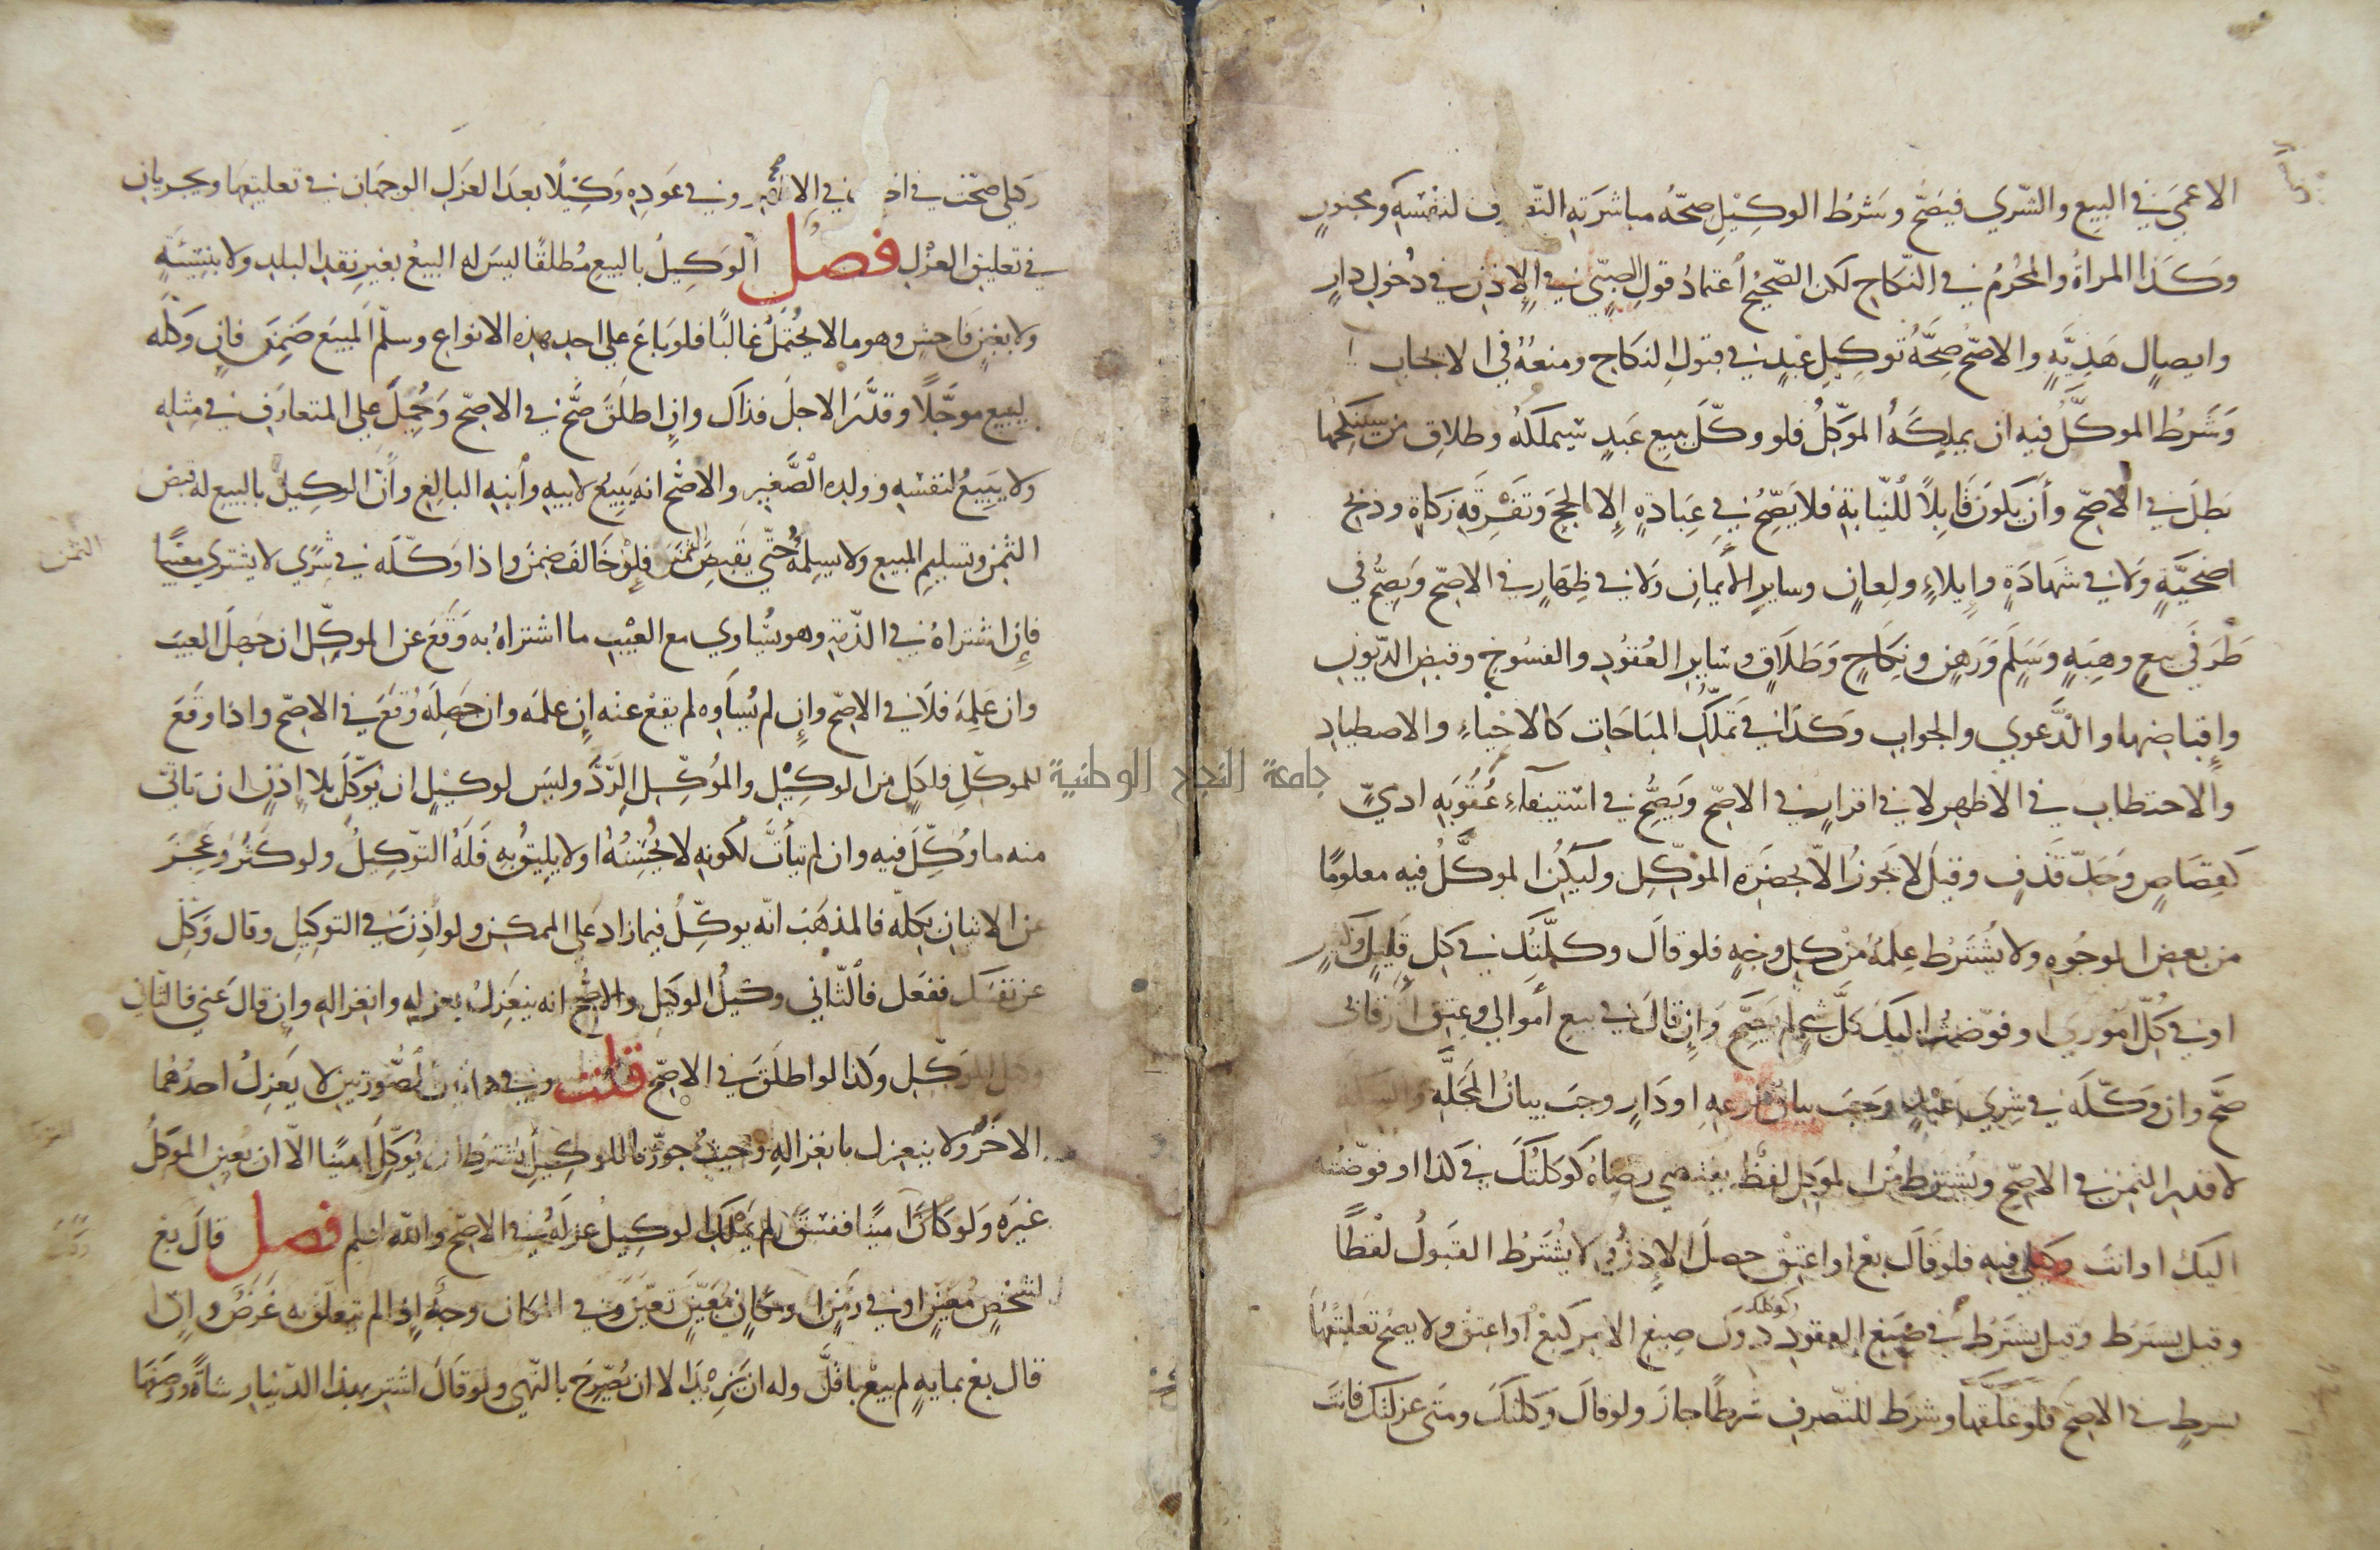 الاعمى في البيع والشري فيصح وشرط الوكيل صحة مباشرته التصرف لنفسه ومجنون
وكذا المراة والمحرم في النكاح لكن الصحيح اعتماد قول الصبي في الاذن في دخول دار
وايصال هدية والاصح صحة توكيل عبد في قبول النكاح ومنعه في الايجاب
وشرط الموكل فيه ان يملكه الموكل فلو وكل ببيع عبد سيملكه وطلاق من سينكحها
بطل في الاصح وأن يكون قابلا للنيابة فلا يصح في عبادة إلا الحج وتفرقه زكاة وذبح
اضحية ولا في شهادة وإيلاء ولعان وساير الأيمان ولا في ظهار في الاصح ويصح في
طرفي بيع وهبه وسلم ورهن ونكاح وطلاق وساير العقود والفسوخ وقبض الديون
وإقباضها والدعوي والجواب وكذا في تملك المباحات كالاحياء والاصطياد
والاحتطاب في الاظهر لا في اقرار في الاصح ويصح في استيفاء عقوبه ادمي
كقصاص وحد قذف وقيل لا يجوز الا بحضرة الموكل وليكن الموكل فيه معلوما
من بعض الوجوه ولا يشترط علمه من كل وجه فلو قال وكلتك في كل قليل وكثير
او في كل اموري او فوضت اليك كل شي لم يصح وإن قال في بيع أموالي وعتق أرقائى
صح وان وكله في شري عبد وجب بيان نوعه او دار وجب بيان المحلة والسكة
لا قدر الثمن في الاصح ويشترط من الموكل لفظ يقتضي رضاه كوكلتك في كذا او فوضته
اليك او انت وكيلي فيه فلو قال بع او اعتق حصل الإذن ولا يشترط القبول لفظا
وقيل يشترط وقيل يشترط في صيغ العقود كوكلتك دون صيغ الامر كبع أو اعتق ولا يصح تعليقها
بشرط في الاصح فلو علقها وشرط للتصرف شرطا جاز ولو قال وكلتك ومتى عزلتك فانت
وكيلي صحت في الحال في الاصح وفي عوده وكيلا بعد العزل الوجهان في تعليقها ويجريان
في تعليق العزل فصل الوكيل بالبيع مطلقا ليس له البيع بغير نقد البلد ولا بنسيئة
ولا بغبن فاحش وهو ما لا يحتمل غالبا فلو باع علي احد هذه الانواع وسلم المبيع ضمن فان وكله
ليبيع موجلا وقدر الاجل فذاك وان اطلق صح في الاصح وحمل علي المتعارف في مثله
ولا يبيع لنفسه وولده الصغير والاصح انه يبيع لابيه وأبنه البالغ وأن الوكيل بالبيع له قبض
الثمن وتسليم المبيع ولا يسلمه حتى يقبض الثمن فلو خالف ضمن واذا وكله في شرى لا يشتري معيبا
الثمن
فإن اشتراه في الذمة وهو يساوي مع العيب ما اشتراه به وقع عن الموكل ان جهل العيب
وان علمه فلا في الاصح وإن لم يساوه لم يقع عنه إن علمه وان جهله وقع في الاصح واذا وقع
للموكل فلكل من الوكيل والموكل الرد وليس لوكيل ان يوكل بلا إذن ان تاتى
منه ما وكل فيه وان لم يتأت لكونه لا يحسنه او لا يليق به فله التوكيل ولو كثر وعجز
عن الاتيان بكله فالمذهب انه يوكل فيما زاد على الممكن ولو أذن في التوكيل وقال وكل
عن نفسك ففعل فالثاني وكيل الوكيل والاصح انه ينعزل بعزله وانعزاله وإن قال عني فالثاني
وكيل الموكل وكذا لو اطلق في الاصح قلت وفي هاتين الصورتين لا يعزل احدهما
الاخر ولا ينعزل بانعزاله وحيث جوزنا للوكيل يشترط ان يوكل امينا الا ان يعين الموكل
غيره ولو كان امينا ففسق لم يملك الوكيل عزله في الاصح والله اعلم فصل قال بع
لشخص معين او في زمن او مكان معين تعين وفي المكان وجه إذا لم يتعلق به غرض وإن
قال بع بمايه لم يبع باقل وله ان يزيد الا ان يصرح بالنهي ولو قال اشتر بهذا الدينار شاة ووصفها
جامعة النجاح الوطنية